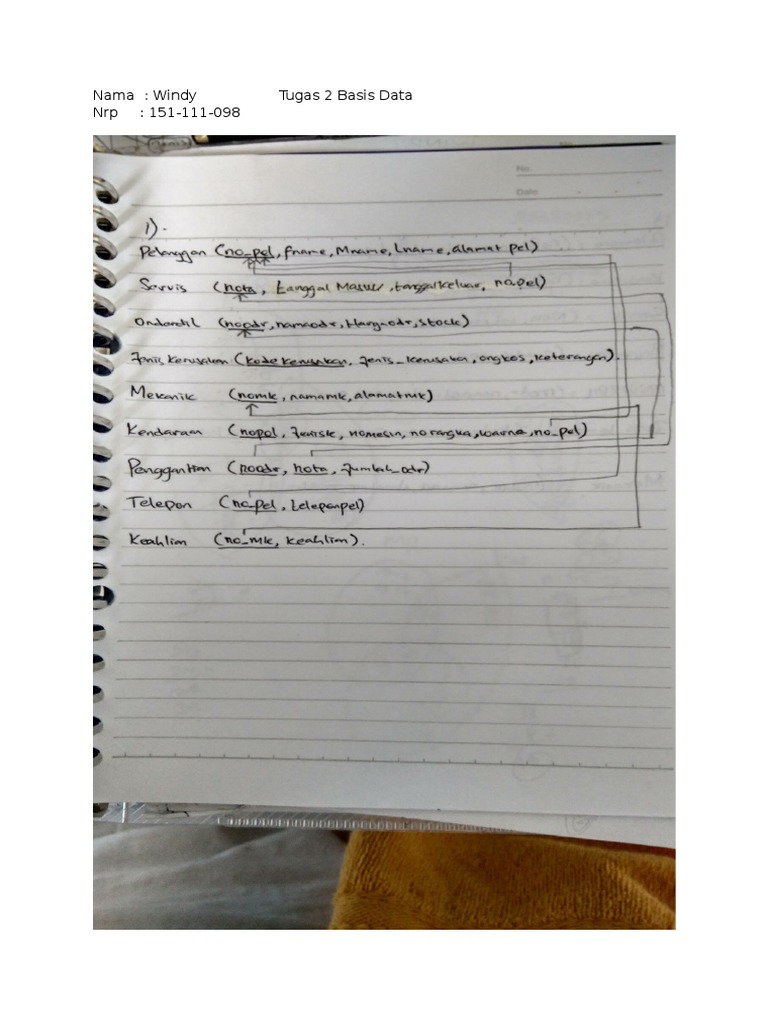 Nama : Windy Tugas 2 Basis Data
Nrp : 151-111-098
No.
Date
1).
Pelanggan (no_pel, Fname, Mname, Lname, alamat pel)
Servis (nota, tanggal Masuk, tanggalkeluar, nopel)
Onderdil (noodr, namaodr, Hargaodr, stock)
Jenis kerusakan (kode kerusakan, Jenis_kerusakan, ongkos, keterangan).
Mekanik (nomk, namamk, alamatmk)
Kendaraan (nopol, Jenisk, nomesin, norangka, warna, no_pel)
Penggantian (noodr, nota, Jumlah_odr)
Telepon (no_pel, teleponpel)
Keahlian (no_mk, keahlian).